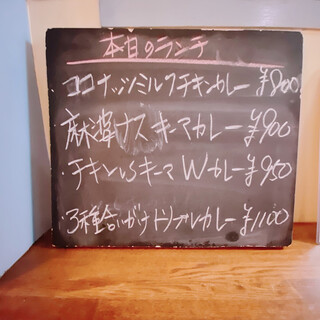 本日のランチ
ココナッツミルクチキンカレー ¥800
麻婆ナス キーマカレー ¥900
・チキンvsキーマ Wカレー ¥950
・3種合いがけトリプルカレー ¥1100